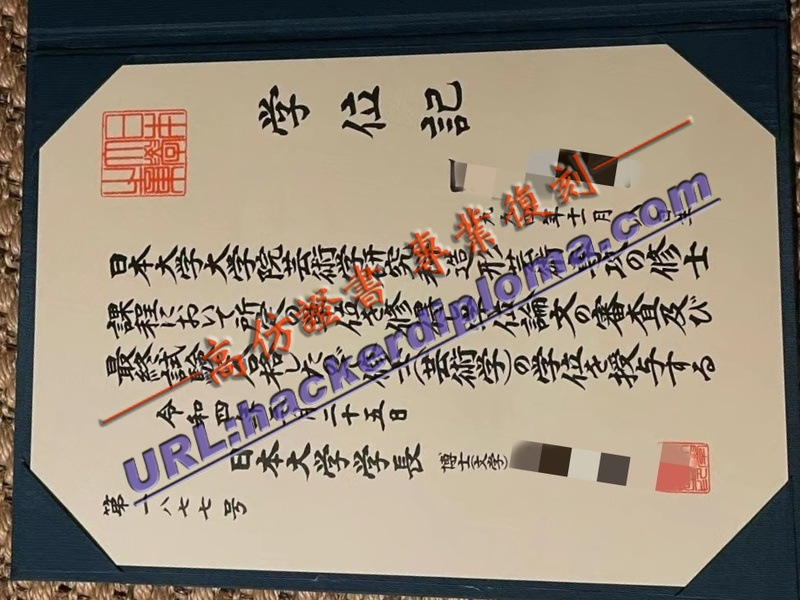 学位記
九九四年十一月
日本大学大学院芸術学研究科造形芸術専攻の修士
課程において所定の単位を修得し学位論文の審査及び
最終試験に合格したので修士(芸術学)の学位を授与する
令和四年 月二十五日
日本大学学長 博士(文学)
第一八七七号
高仿證書 專業復刻
URL:hackerdiploma.com